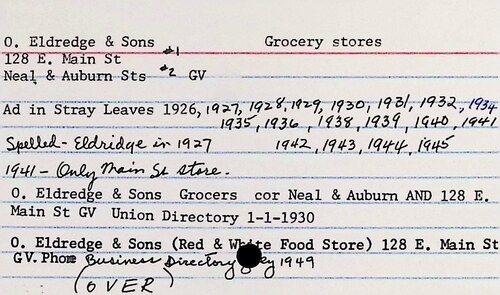 O. Eldredge & Sons #1 Grocery stores
128 E. Main St
Neal & Auburn Sts #2 GV
Ad in Stray Leaves 1926, 1927, 1928, 1929, 1930, 1931, 1932, 1934
1935, 1936, 1938, 1939, 1940, 1941
Spelled - Eldridge in 1927 1942, 1943, 1944, 1945
1941 - Only Main St store.
O. Eldredge & Sons Grocers cor Neal & Auburn AND 128 E.
Main St GV Union Directory 1-1-1930
O. Eldredge & Sons (Red & White Food Store) 128 E. Main St
GV. Phone Business Directory 1949
(OVER)